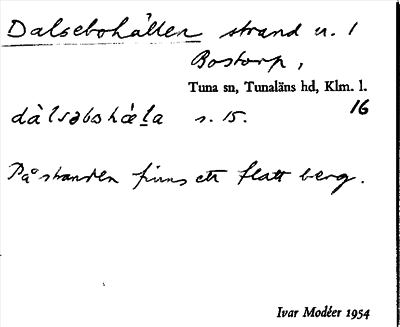 Dalsebohällen strand u. 1
Bostorp,
Tuna sn, Tunaläns hd, Klm. l.
16
dàlsəbshæ̀la s. 15.
På stranden finns ett flatt berg.
Ivar Modéer 1954